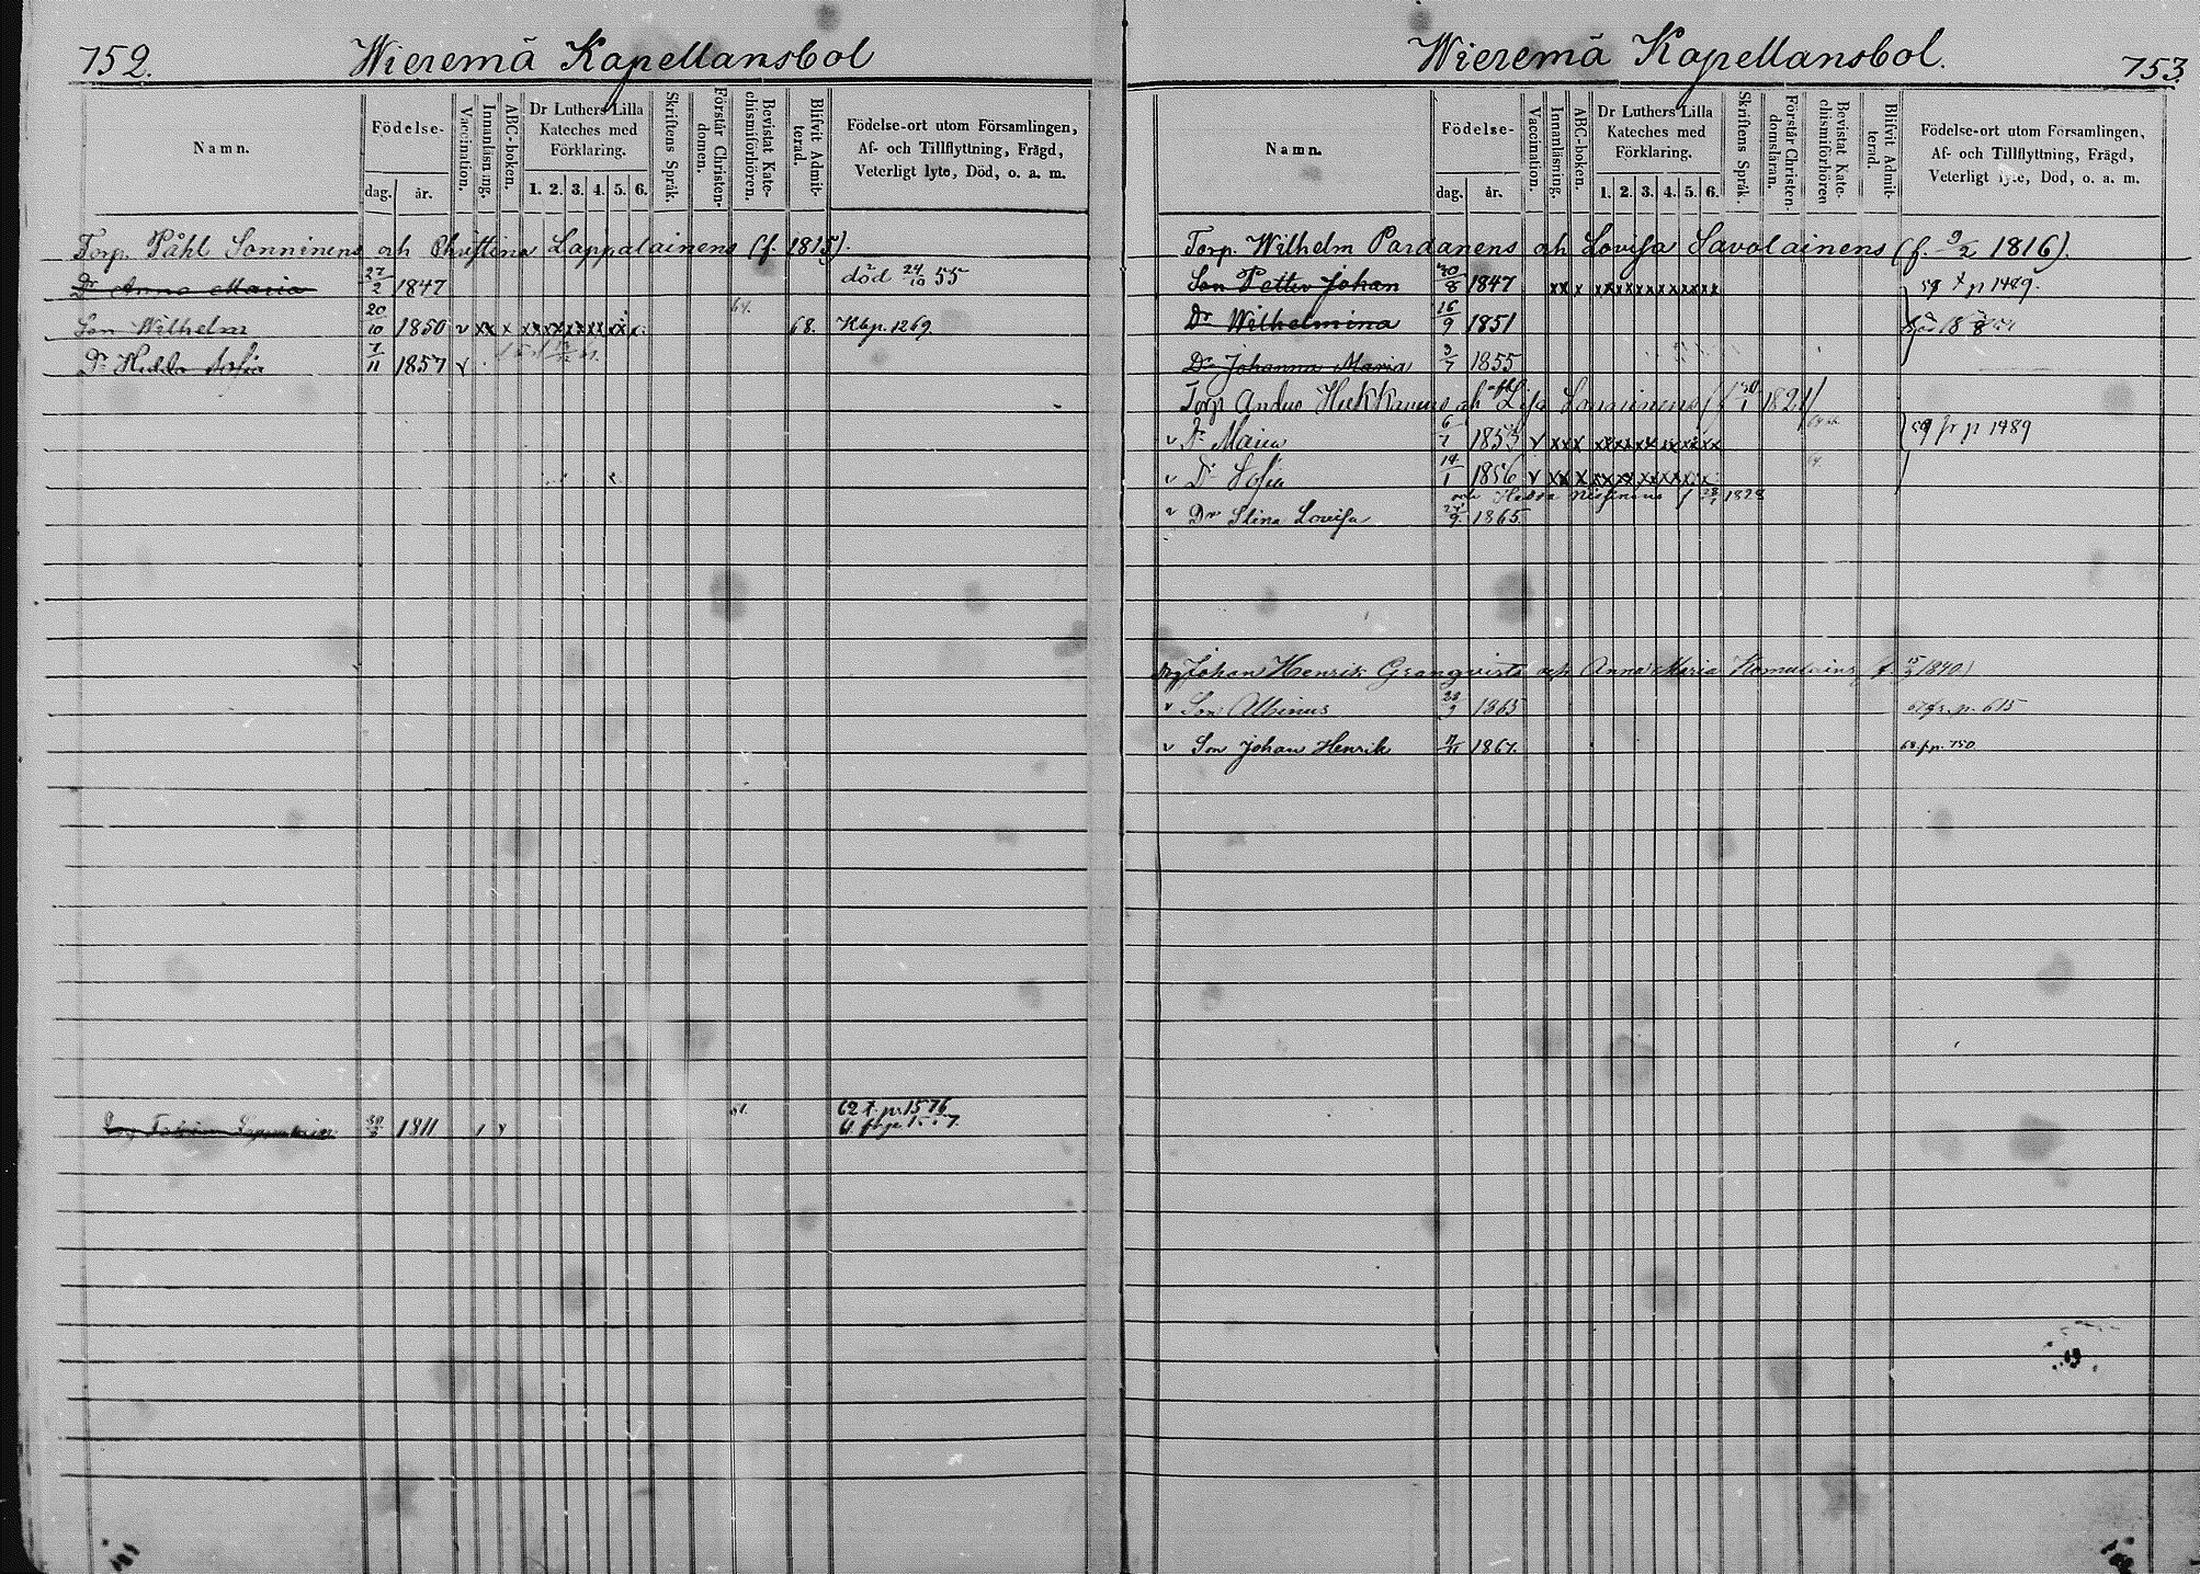 752.
Wieremä Kapellansbol
Namn.
Födelse-
dag.
år.
Vaccination.
Innanläsning.
ABC-boken.
Dr Luthers Lilla
Kateches med
Förklaring.
1. 2. 3. 4. 5. 6.
Skriftens Språk.
Förstår Christen-
domen.
Bevistat Kate-
chismiförhören.
Blifvit Admit-
terad.
Födelse-ort utom Församlingen,
Af- och Tillflyttning, Frägd,
Veterligt lyte, Död, o. a. m.
Torp. Påhl Sonninens och Christina Lappalainens (f. 1815).
Dr Anna Maria 27/2 1847 död 24/10 55
Son Wilhelm 20/10 1850 v xx x xx xx xx xx xx x 64. 68. Kbp. 1269
Dr Hedda Sofia 7/11 1857 v
1811 61. 62 t. p. 1576
753.
Wieremä Kapellansbol.
Namn.
Födelse-
dag.
år.
Vaccination.
Innanläsning.
ABC-boken.
Dr Luthers Lilla
Kateches med
Förklaring.
1. 2. 3. 4. 5. 6.
Skriftens Språk.
Förstår Christen-
domsläran.
Bevistat Kate-
chismiförhören
Blifvit Admit-
terad.
Födelse-ort utom Församlingen,
Af- och Tillflyttning, Frägd,
Veterligt lyte, Död, o. a. m.
Torp. Wilhelm Pardanens och Lovisa Savolainens (f. 9/2 1816).
Son Petter Johan 30/8 1847 xx x xx xx xx xx xx xx 59 t p 1489.
Dr Wilhelmina 16/9 1851
Dr Johanna Maria 3/7 1855
Torp Anders Hukkanens och Lisa Sonninens 1821
v Dr Maria 6/7 1853 v xx x xx xx xx xx xx xx 59 fr p 1489
v Dr Sofia 14/1 1856 v xx x xx xx xx xx
och Hedda Nissinens f 1828
v Dr Stina Lovisa 1865
Johan Henrik Granqvists och Anna Maria Komulainens 1840
v Son Albinus 1863 67 fr. p. 615
v Son Johan Henrik 1867. 68. f. p. 750